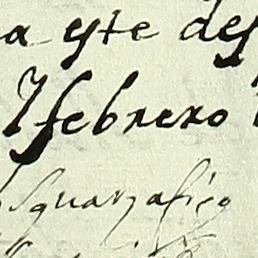 a este des
febrero
Squarzafico